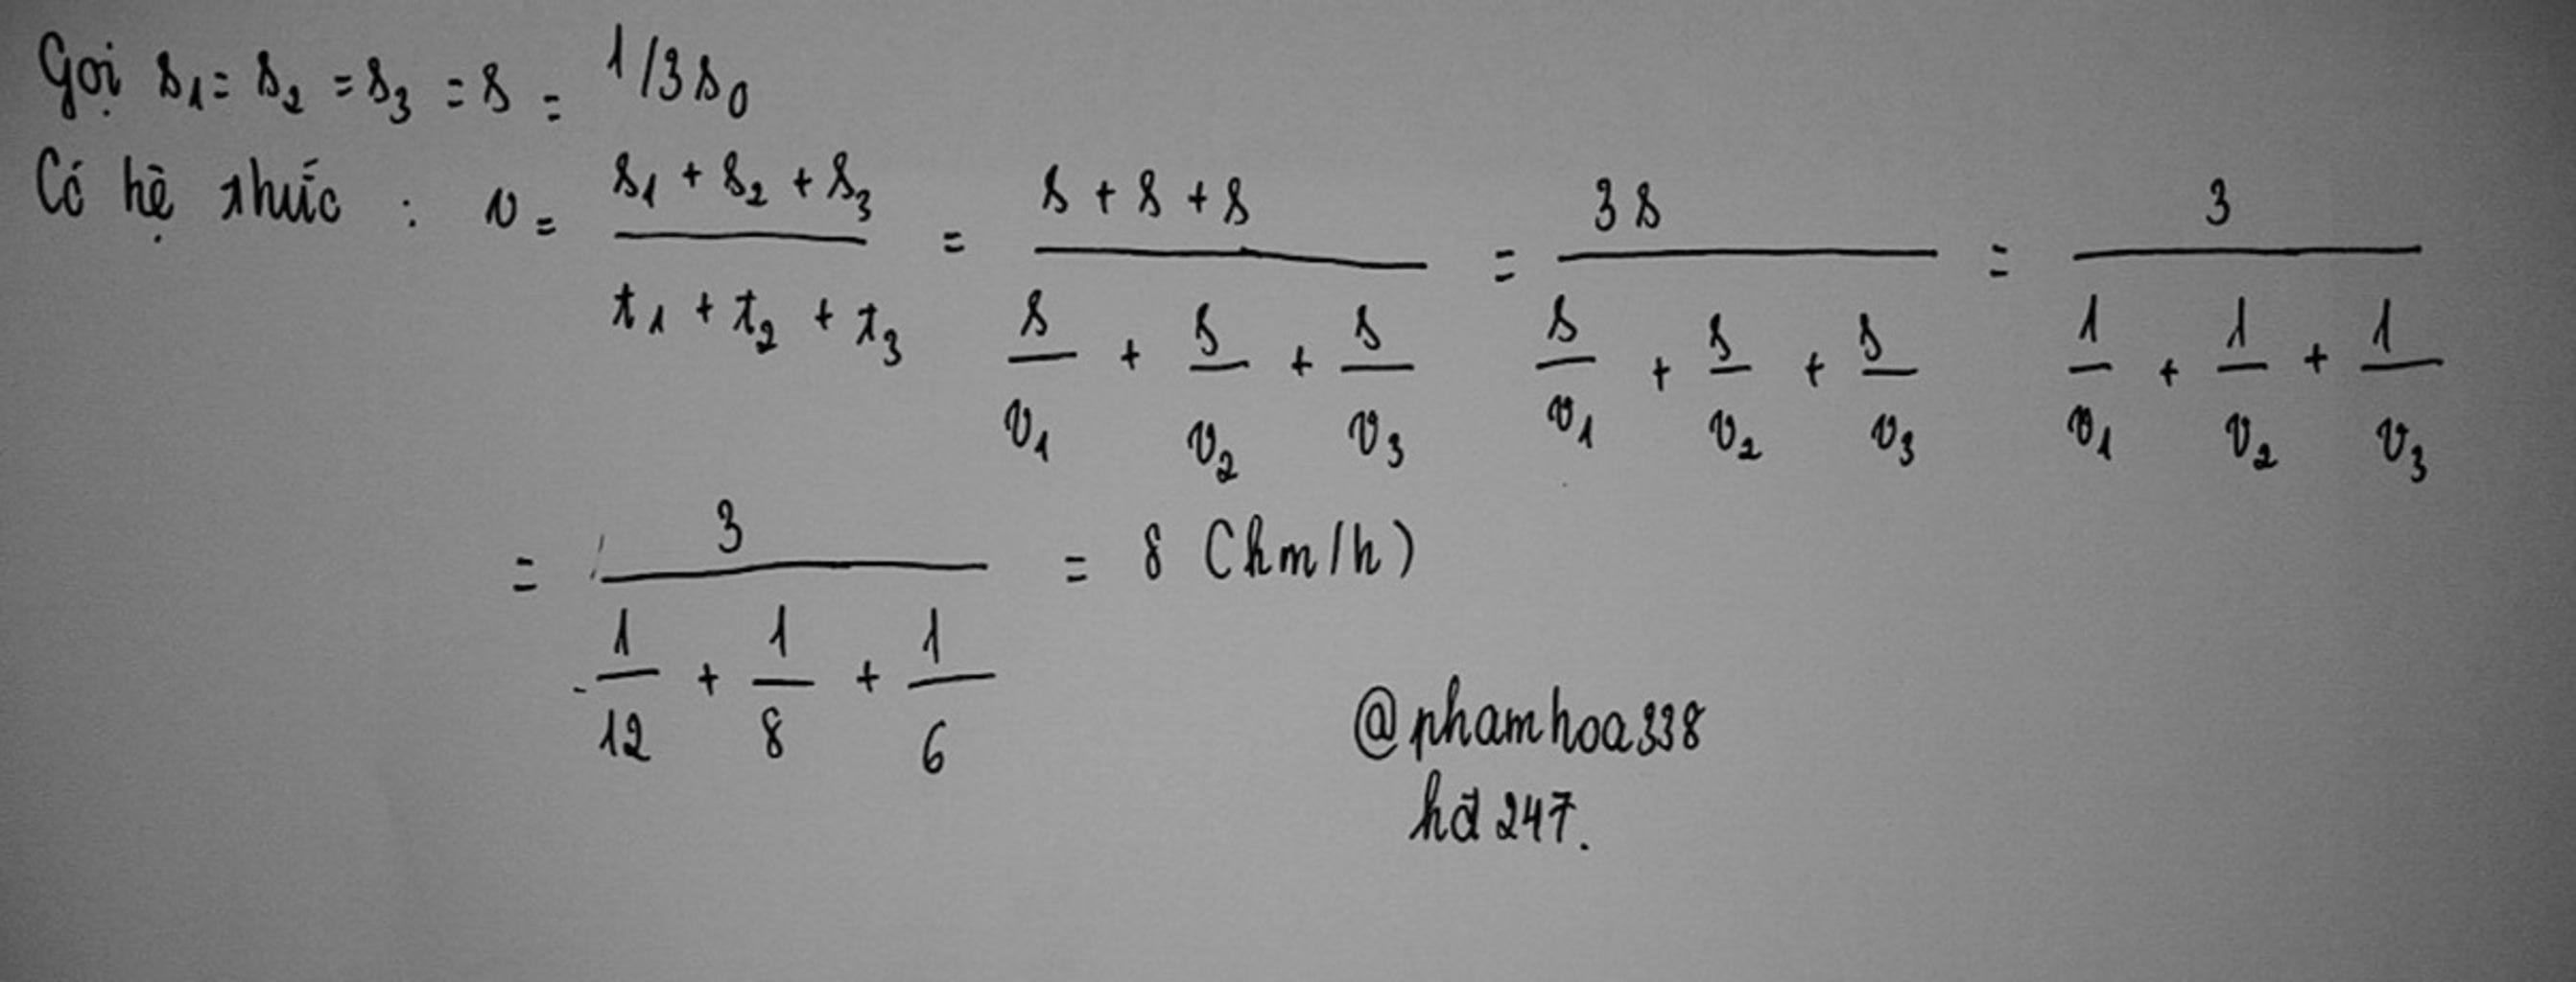 Gọi s₁ = s₂ = s₃ = s = 1/3 s₀
Có hệ thức : v = (s₁ + s₂ + s₃)/(t₁ + t₂ + t₃) = (s + s + s)/(s/v₁ + s/v₂ + s/v₃) = 3s/(s/v₁ + s/v₂ + s/v₃) = 3/(1/v₁ + 1/v₂ + 1/v₃)
= 3/(1/12 + 1/8 + 1/6) = 8 (km/h)
@phamhoa338
hđ 247.